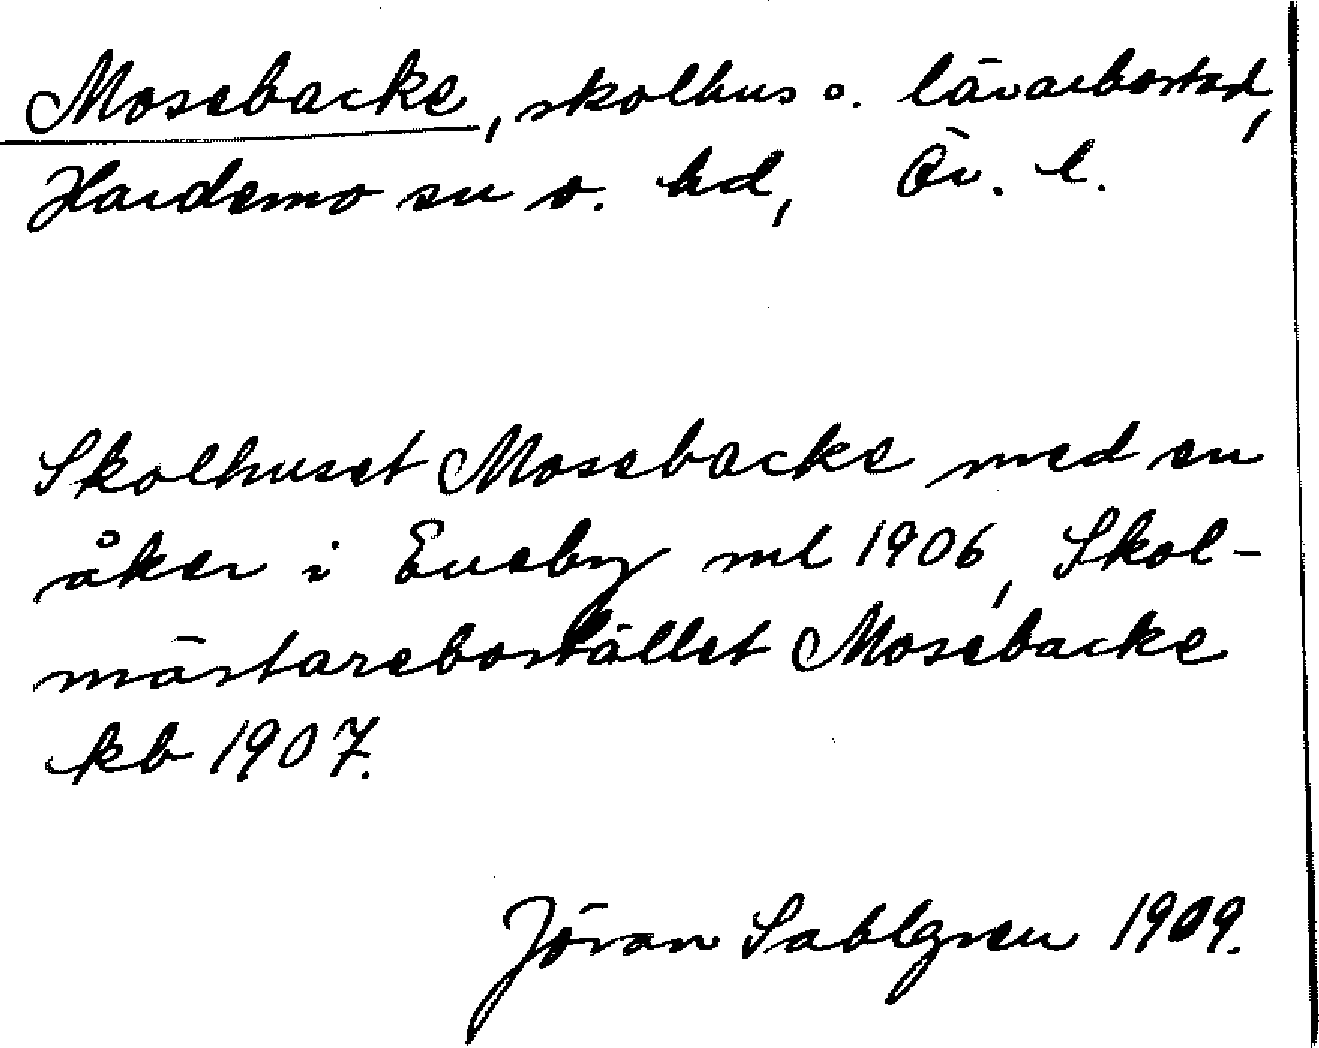 Mosebacke, skolhus o. lärarbostad,
Hardemo sn o. hd, Ör. l.
Skolhuset Mosebacke med en
åker i Eneby ml 1906, Skol-
mästarebostället Mosebacke
kb 1907.
Jöran Sahlgren 1909.